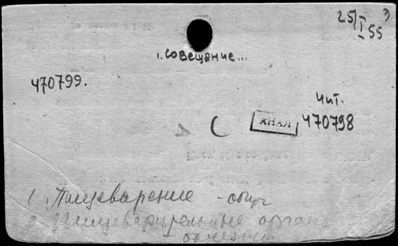 25/I 55
1. совещание...
470799.
Чит.
АНАЛ 470798
1. Пищеварение - общ
2. Пищеварительные органы
болезни